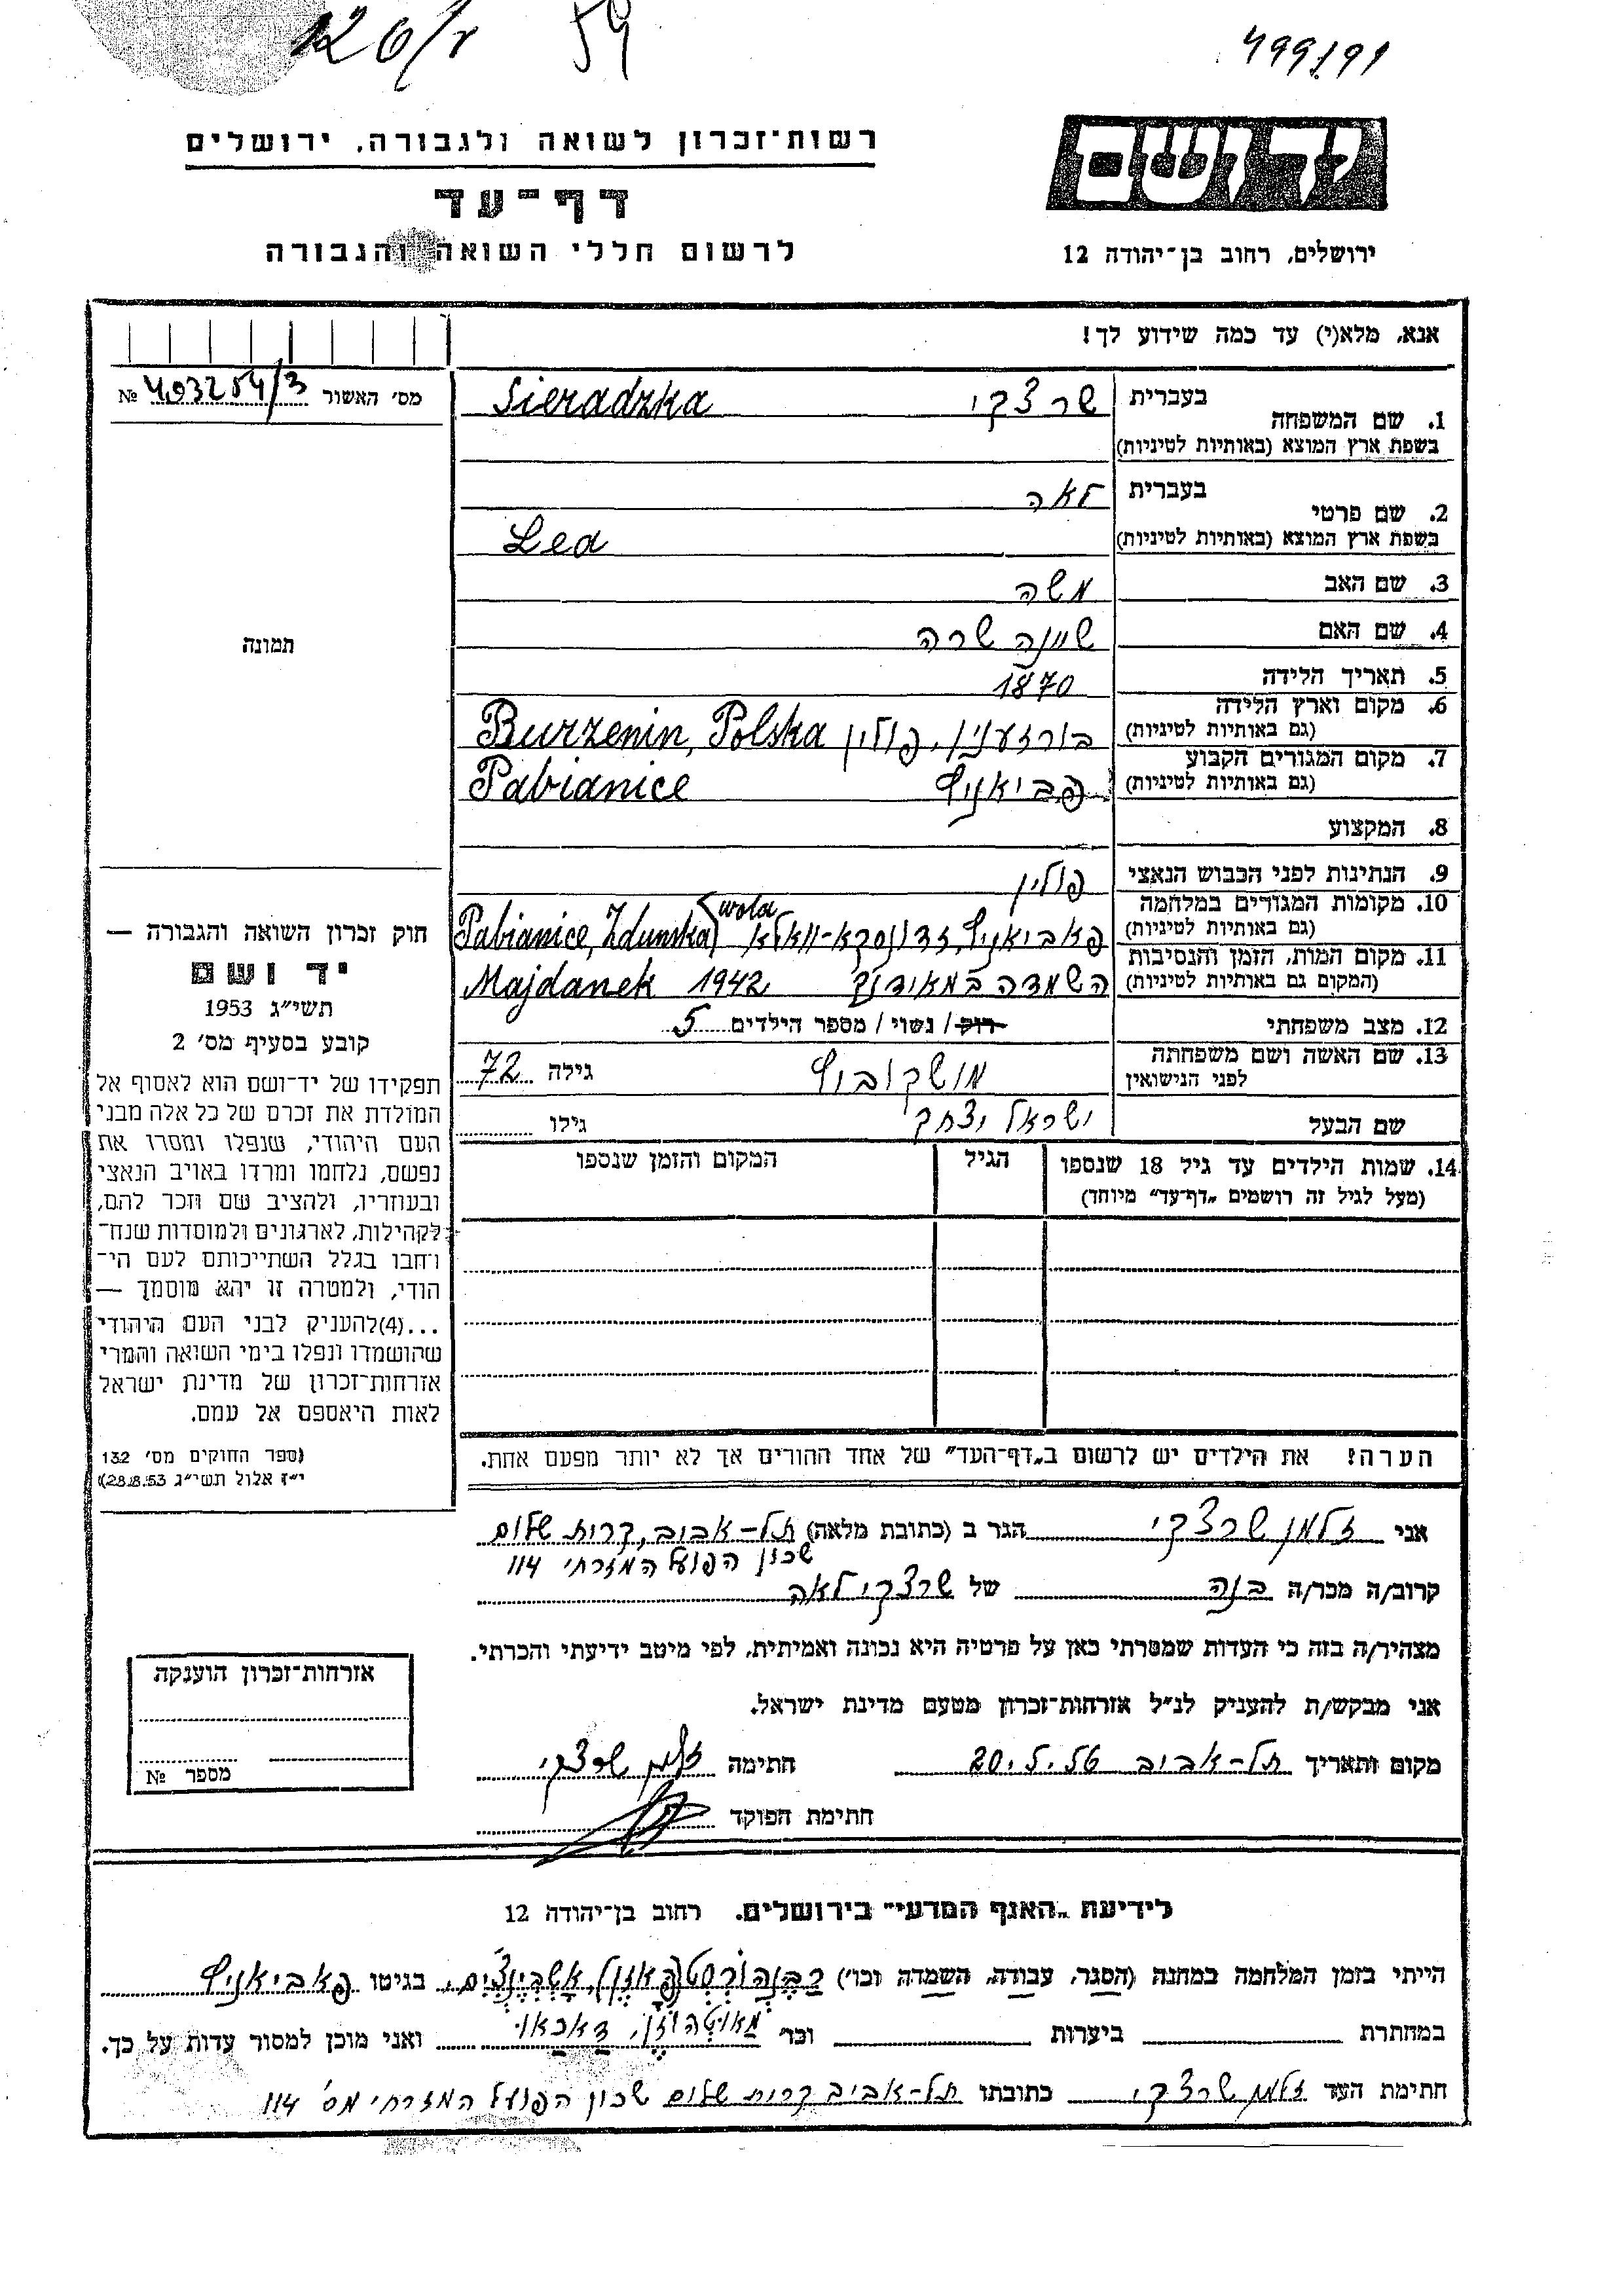 120/1 59
499191
רשות־זכרון לשואה ולגבורה, ירושלים
דף־עד
לרשום חללי השואה והגבורה
יד ושם
ירושלים, רחוב בן־יהודה 12
אנא, מלא(י) עד כמה שידוע לך!
מס׳ האשור 493254/3 №
תמונה
1. שם המשפחה בעברית שרצקי Sieradzka
בשפת ארץ המוצא (באותיות לטיניות)
2. שם פרטי בעברית לאה
בשפת ארץ המוצא (באותיות לטיניות) Lea
3. שם האב משה
4. שם האם שיינה שרה
5. תאריך הלידה 1870
6. מקום וארץ הלידה
(גם באותיות לטיניות) בורזענין, פולין Burzenin, Polska
7. מקום המגורים הקבוע
(גם באותיות לטיניות) פביאניץ Pabianice
8. המקצוע
9. הנתינות לפני הכבוש הנאצי פולין
10. מקומות המגורים במלחמה
(גם באותיות לטיניות) פאביאניץ, זדונסקא-וואלא Pabianice, Zdunska wola
11. מקום המות, הזמן והנסיבות
(המקום גם באותיות לטיניות) השמדה במאידנק Majdanek 1942
12. מצב משפחתי רווק/ נשוי/ מספר הילדים 5
13. שם האשה ושם משפחתה
לפני הנישואין מושקוביץ גילה 72
שם הבעל ישראל יצחק גילו
14. שמות הילדים עד גיל 18 שנספו הגיל המקום והזמן שנספו
(מעל לגיל זה רושמים „דף־עד״ מיוחד)
חוק זכרון השואה והגבורה —
יד ושם
תשי״ג 1953
קובע בסעיף מס׳ 2
תפקידו של יד־ושם הוא לאסוף אל
המולדת את זכרם של כל אלה מבני
העם היהודי, שנפלו ומסרו את
נפשם, נלחמו ומרדו באויב הנאצי
ובעוזריו, ולהציב שם וזכר להם,
לקהילות, לארגונים ולמוסדות שנח־
רחבו בגלל השתייכותם לעם הי־
הודי, ולמטרה זו יהא מוסמך —
...(4)להעניק לבני העם היהודי
שהושמדו ונפלו בימי השואה והמרי
אזרחות־זכרון של מדינת ישראל
לאות היאספם אל עמם.
(ספר החוקים מס׳ 132
י״ז אלול תשי״ג 28.8.53)
הערה! את הילדים יש לרשום ב„דף־העד״ של אחד ההורים אך לא יותר מפעם אחת.
אני זלמן שרצקי הגר ב (כתובת מלאה) תל-אביב, קרית שלום
שכון הפועל המזרחי 114
קרוב/ה מכר/ה בנה של שרצקי לאה
מצהיר/ה בזה כי העדות שמסרתי כאן על פרטיה היא נכונה ואמיתית, לפי מיטב ידיעתי והכרתי.
אני מבקש/ת להעניק לנ״ל אזרחות־זכרון מטעם מדינת ישראל.
מקום ותאריך תל-אביב 20.5.56 חתימה זלמן שרצקי
חתימת הפוקד
אזרחות־זכרון הוענקה
מספר №
לידיעת „האגף המדעי״ בירושלים, רחוב בן־יהודה 12
הייתי בזמן המלחמה במחנה (הסגר, עבודה, השמדה וכו׳) אַשְׁבֶיְנְצִים, בגיטו פאביאניץ
במחתרת ביערות וכו׳ מַאוּטְהוֹזֶן, דַאכַאוּ ואני מוכן למסור עדות על כך.
חתימת העד זלמן שרצקי כתובתו תל-אביב קרית שלום שכון הפועל המזרחי מס׳ 114